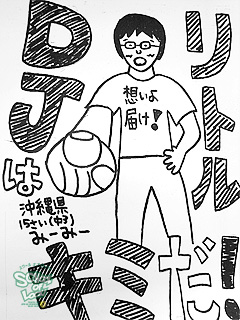 リトル
DJは
キミだ!
想いよ
届け!
沖縄県
15さい(中3)
みーみー